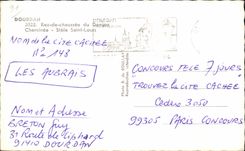 DOURDAN
2022. Rez-de-chaussée du Donjon
Cheminée - Stèle Saint-Louis
NOM de la CITE CACHÉE
N° 148
LES AUBRAIS
NOM et Adresse
BRETON Guy
31 Route de Liphard
91410 DOURDAN
CONCOURS TELE 7 JOURS
TROUVEZ LA CITE CACHEE
Cedex 3050
99305 PARIS CONCOURS